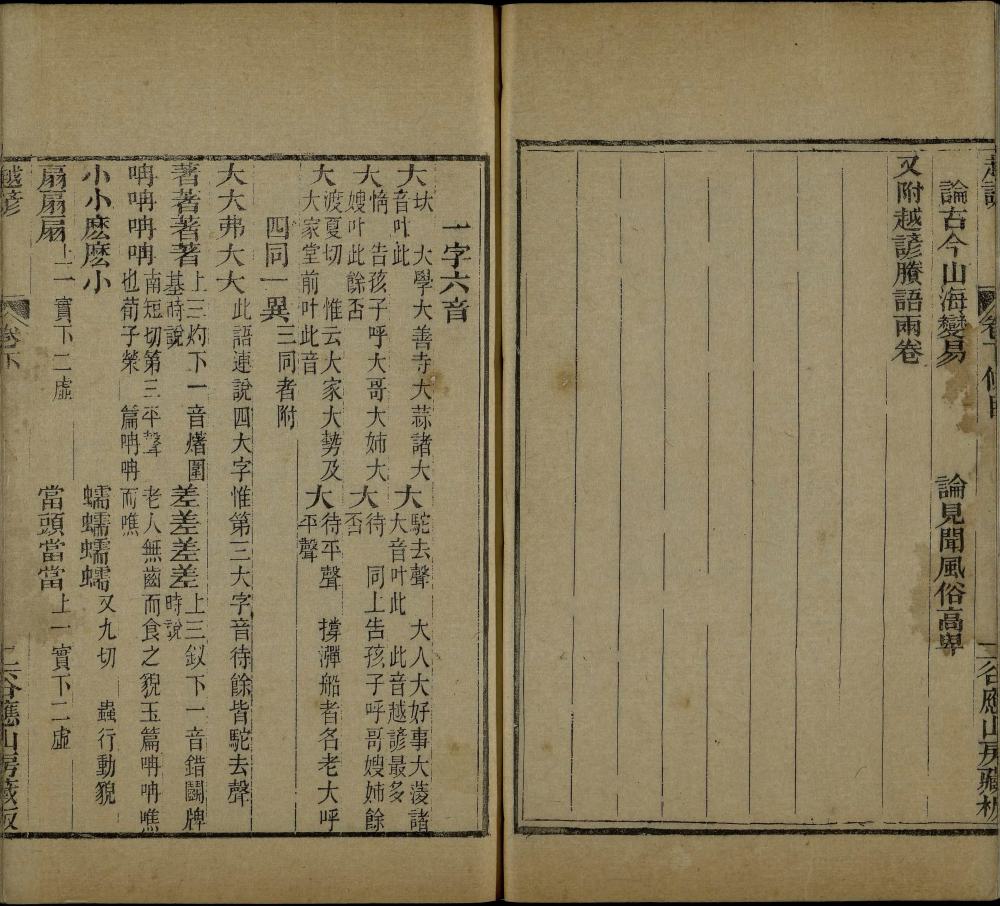 越諺 卷下 條目 二 谷應山房藏板
論古今山海變易 論見聞風俗高卑
又附越諺賸語兩卷
一字六音
大 大學大善寺大蒜諸大音叶此 大駝去聲 大人大好事大菱諸大音叶此 此音越諺最多
大惰 告孩子呼大哥大姉大嫂叶此餘否 大待 同上告孩子呼哥嫂姉餘否
大渡夏切 惟云大家大勢及大家堂前叶此音 大待平聲 撐潬船者名老大呼平聲
四同一異 三同者附
大大弗大大 此語連說四大字惟第三大字音待餘皆駝去聲
著著著著 上三灼下一音㸑圍基時說 差差差差 上三釵下一音錯鬭牌時說
呥呥呥呥 南短切第三平聲 老人無齒而食之貌玉篇呥呥噍也荀子榮 篇呥呥而噍
小小麽麽小 蠕蠕蠕蠕 又九切 蟲行動貌
扇扇扇 上一實下二虛 當頭當當 上一實下二虛
越諺 卷下 二 谷應山房藏板